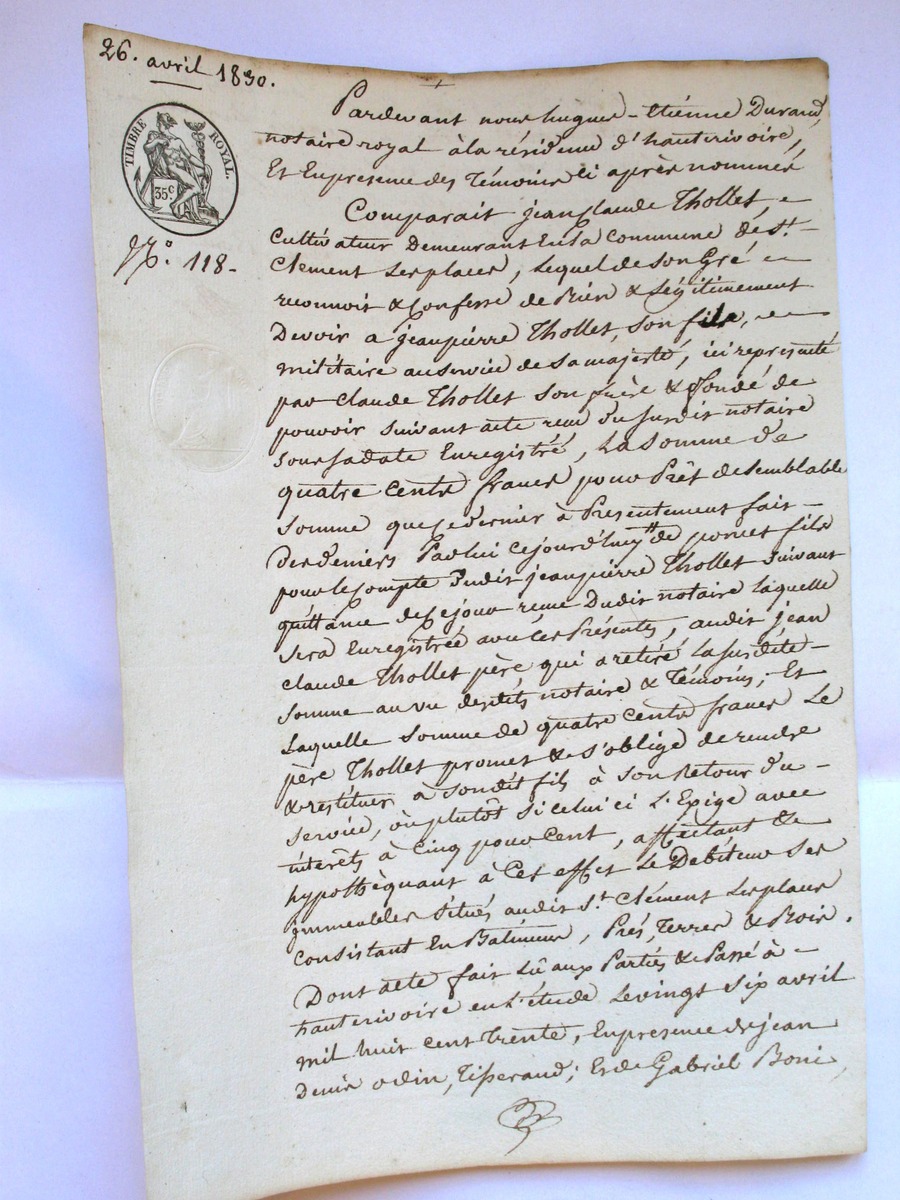 26. avril 1830.
TIMBRE ROYAL.
35c
No. 118-
Pardevant nous hugues-Etiénne Durand,
notaire royal à la résidence d'hauterivoire,
Et En presence des Témoins Ci après nommés
Comparait jean Claude Thollet,
Cultivateur Demeurant En la Commune de St-
Clement Les places, Lequel de Son Gré
reconnoit & Confesse de Bien & Légitimement
Devoir a jean pierre Thollet, Son fils,
militaire au Service de Sa majesté, ici representé
par Claude Thollet Son frère & fondé de
pouvoir Suivant acte reçu du Susdit notaire
Sous Sa date Enregistré, La Somme de
quatre Cents francs pour Prêt de Semblable
Somme que Ce dernier à Présentement fait
des deniers Par lui Ce jourd'huy
pour le Compte Dudit jean pierre Thollet Suivant
quittance de Ce jour Dudit notaire Laquelle
Sera Enregistrée avec Ces Présentes, audit jean
Claude Thollet père qui a retiré La Susdite
Somme au vu desdits notaire & Témoins; Et
Laquelle Somme de quatre Cents francs Le
père Thollet promet & S'oblige de rendre
& restituer à Sondit fils à Son Retour du
Service, où plutôt Si Celui ci L'Exige avec
intérêts à Cinq pour Cent, affectant &
hypothèquant à Cet effet Le Débiteur Ses
immeubles Situés audit St. Clément Les places
Consistant En Batimens, Prés, Terres & Bois.
Dont acte fait Lû aux Parties & Passé à
hauterivoire en L'étude Le vingt Six avril
mil huit Cent Trente, En presence de jean
Denis odin, Tisserand; Et de Gabriel Boni